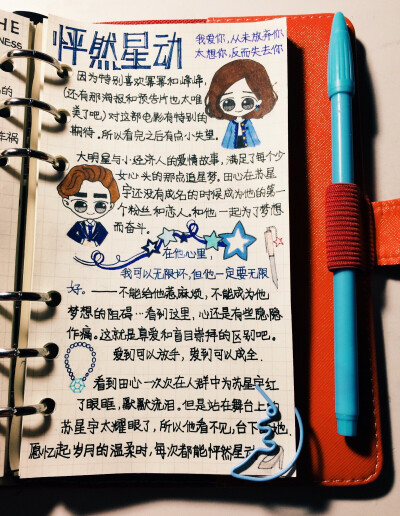 HE
NESS
的
车祸
怦然星动
我爱你，从未放弃你
太想你，反而失去你
因为特别喜欢幂幂和峰峰，
(还有那海报和预告片也太唯
美了吧)对这部电影有特别的
期待。所以看完之后有点小失望。
大明星与小经济人的爱情故事，满足了每个少
女心头的那点追星梦。田心在苏星
宇还没有成名的时候成为他的第一
个粉丝和恋人。和他一起为了梦想
而奋斗。
在他心里，
我可以无限坏，但他一定要无限
好。——不能给他惹麻烦，不能成为他
梦想的阻碍…看到这里，心还是有些隐隐
作痛。这就是真爱和盲目崇拜的区别吧。
爱到可以放手，爱到可以成全.
看到田心一次次在人群中为苏星宇红
了眼眶，默默流泪。但是站在舞台上
苏星宇太耀眼了，所以他看不见，台下 她.
愿忆起岁月的温柔时，每次都能怦然星动